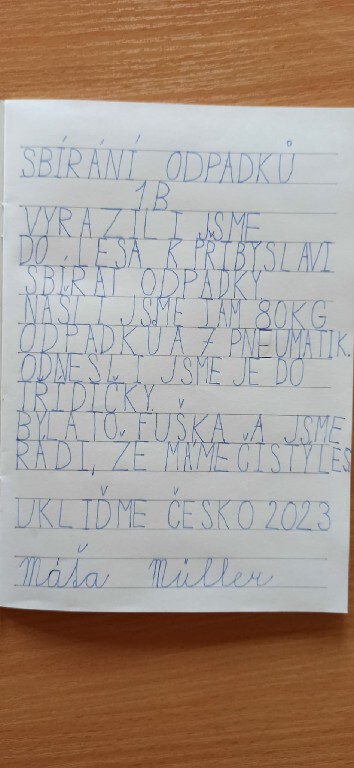 SBÍRÁNÍ ODPADKŮ
1B
VYRAZILI JSME
DO LESA K PŘIBYSLAVI
SBÍRAT ODPADKY.
NAŠLI JSME TAM 80KG
ODPADKŮ A 7 PNEUMATIK.
ODNESLI JSME JE DO
TŘÍDIČKY.
BYLA TO FUŠKA A JSME
RÁDI, ŽE MÁME ČISTÝ LES
UKLIĎME ČESKO 2023
Máša Müller